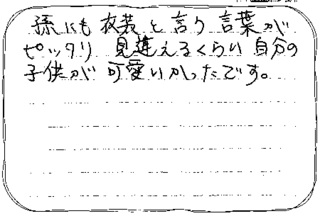 孫にも衣装と言う言葉が
ピッタリ 見違えるくらい自分の
子供が可愛いかったです。